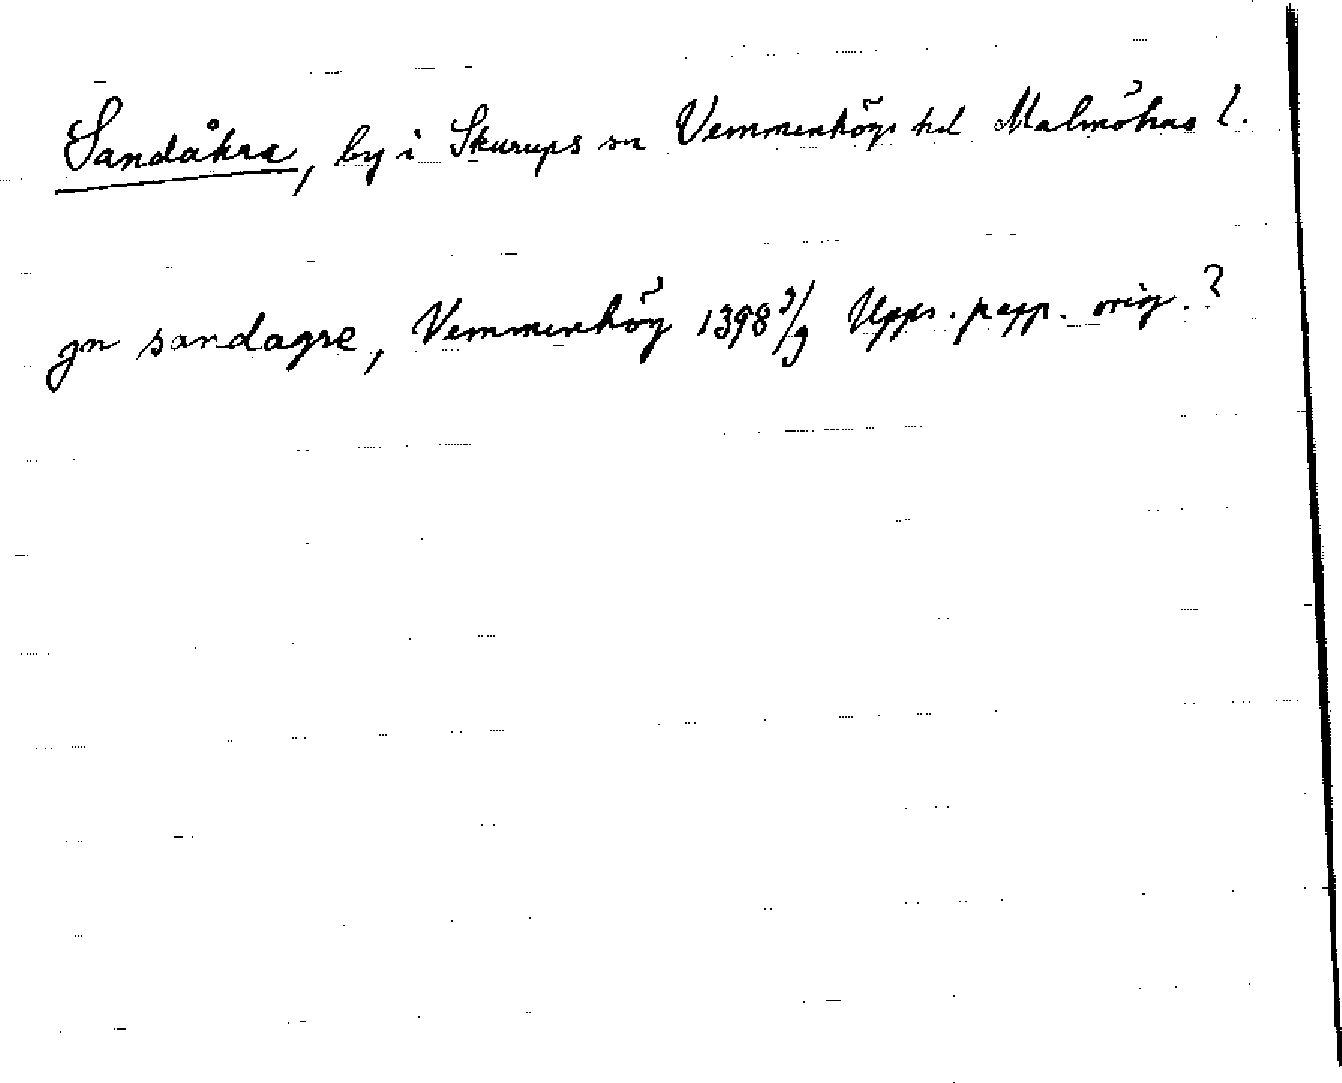 Sandåkra, by i Skurups sn Vemmenhögs hd Malmöhus l.
jn sandagre, Vemmenhög 1398 3/9 Upps. papp. orig.?